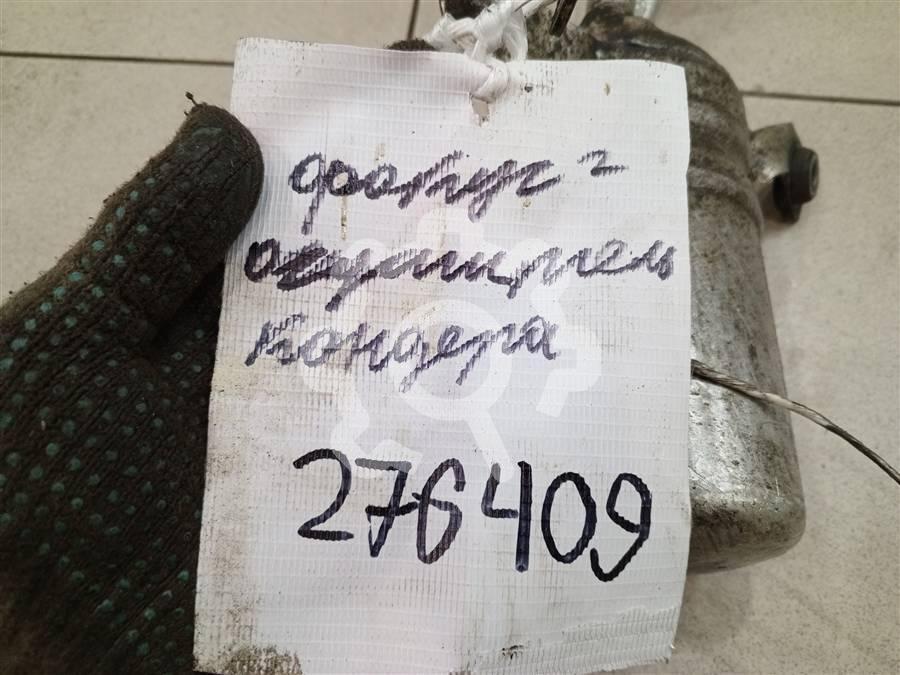 фотус -
осушитель
кондера
276409